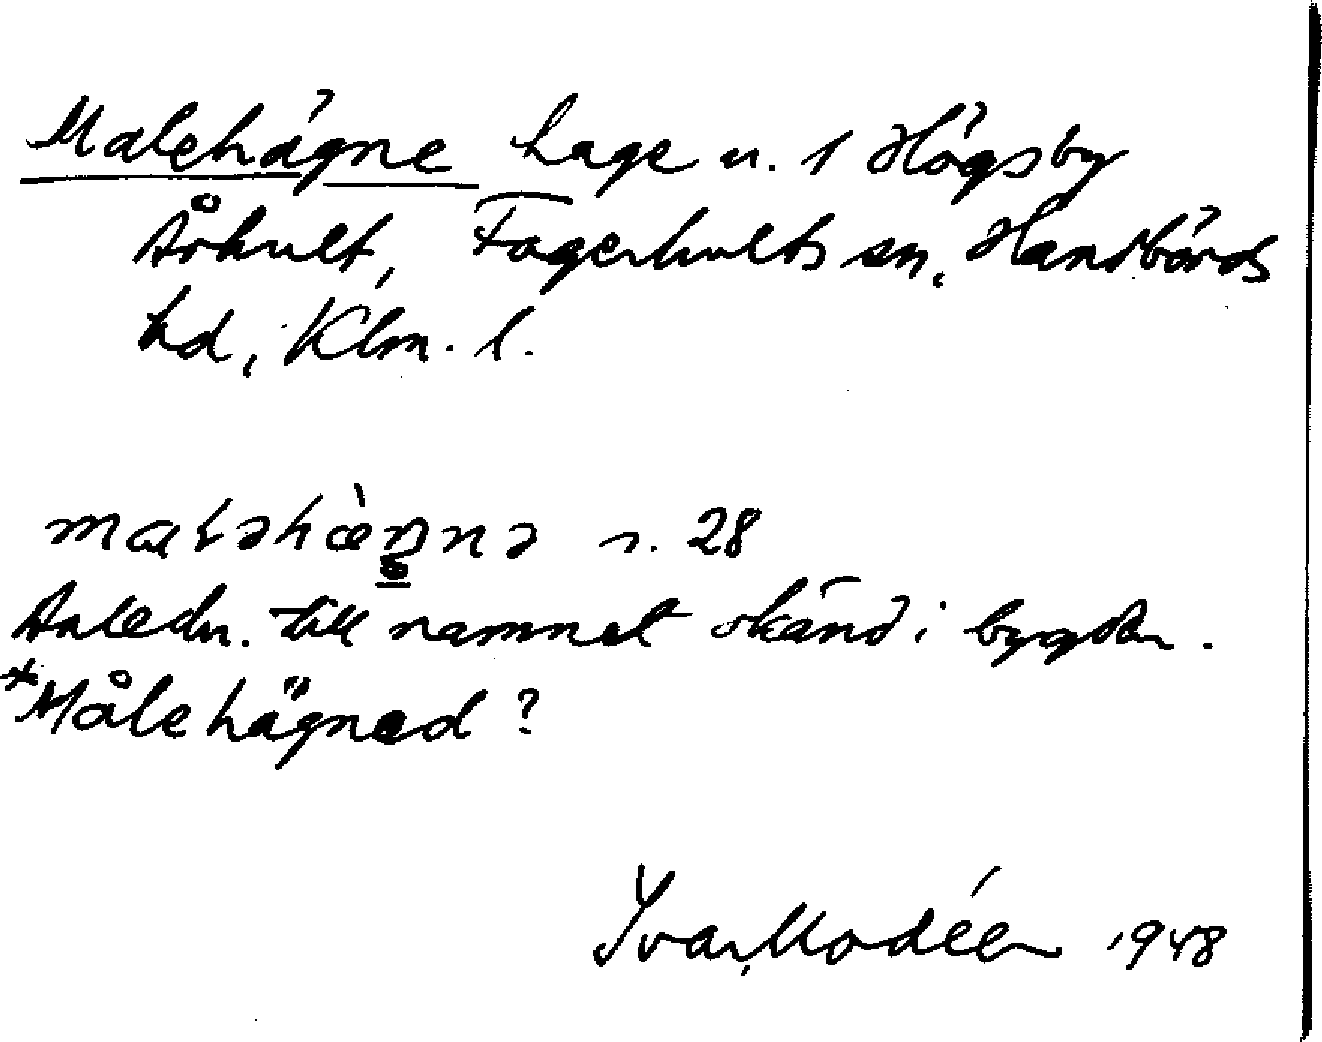 Malehägne hage u. 1 Högsby
Århult, Fagerhults sn, Handbörds
hd, Klm. l.
maləhæ̀ŋnə n. 28
Anledn. till namnet okänd i bygden.
*Målehägnad?
Ivar Modéer 1948